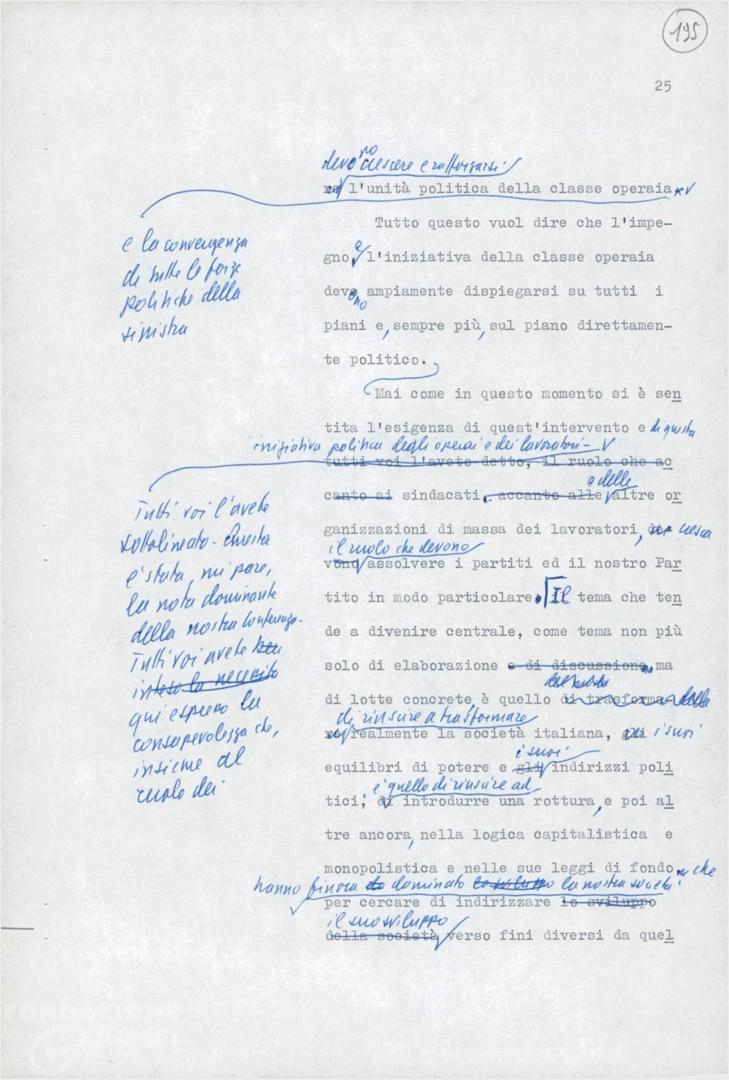 195
25
devono crescere e rafforzarsi
re l'unità politica della classe operaia
e la convergenza
di tutte le forze
politiche della
sinistra
Tutto questo vuol dire che l'impe-
gno, e l'iniziativa della classe operaia
devono ampiamente dispiegarsi su tutti i
piani e, sempre più, sul piano direttamen-
te politico.
Mai come in questo momento si è sen
tita l'esigenza di quest'intervento e di questa
iniziativa politica degli operai e dei lavoratori-
tutti voi l'avete detto, il ruolo che ac
Tutti voi l'avete
sottolineato - Questa
è stata, mi pare,
la nota dominante
della nostra Conferenza-
Tutti voi avete
inteso la necessità
qui espresso la
consapevolezza che,
insieme al
ruolo dei
canto ai sindacati, accanto alle e delle altre or
ganizzazioni di massa dei lavoratori, cresca
il ruolo che devono
vono assolvere i partiti ed il nostro Par
tito in modo particolare. Il tema che ten
de a divenire centrale, come tema non più
solo di elaborazione e di discussione, ma
di lotte concrete, è quello di trasforma della
di riuscire a trasformare
re realmente la società italiana, gli i suoi
i suoi
equilibri di potere e gli indirizzi poli
è quello di riuscire ad
tici; di introdurre una rottura, e poi al
tre ancora, nella logica capitalistica e
monopolistica e nelle sue leggi di fondo, che
hanno finora dominato lo sviluppo la nostra società
per cercare di indirizzare lo sviluppo
il suo sviluppo
della società verso fini diversi da quel
FONDAZIONE
GRAMSCI